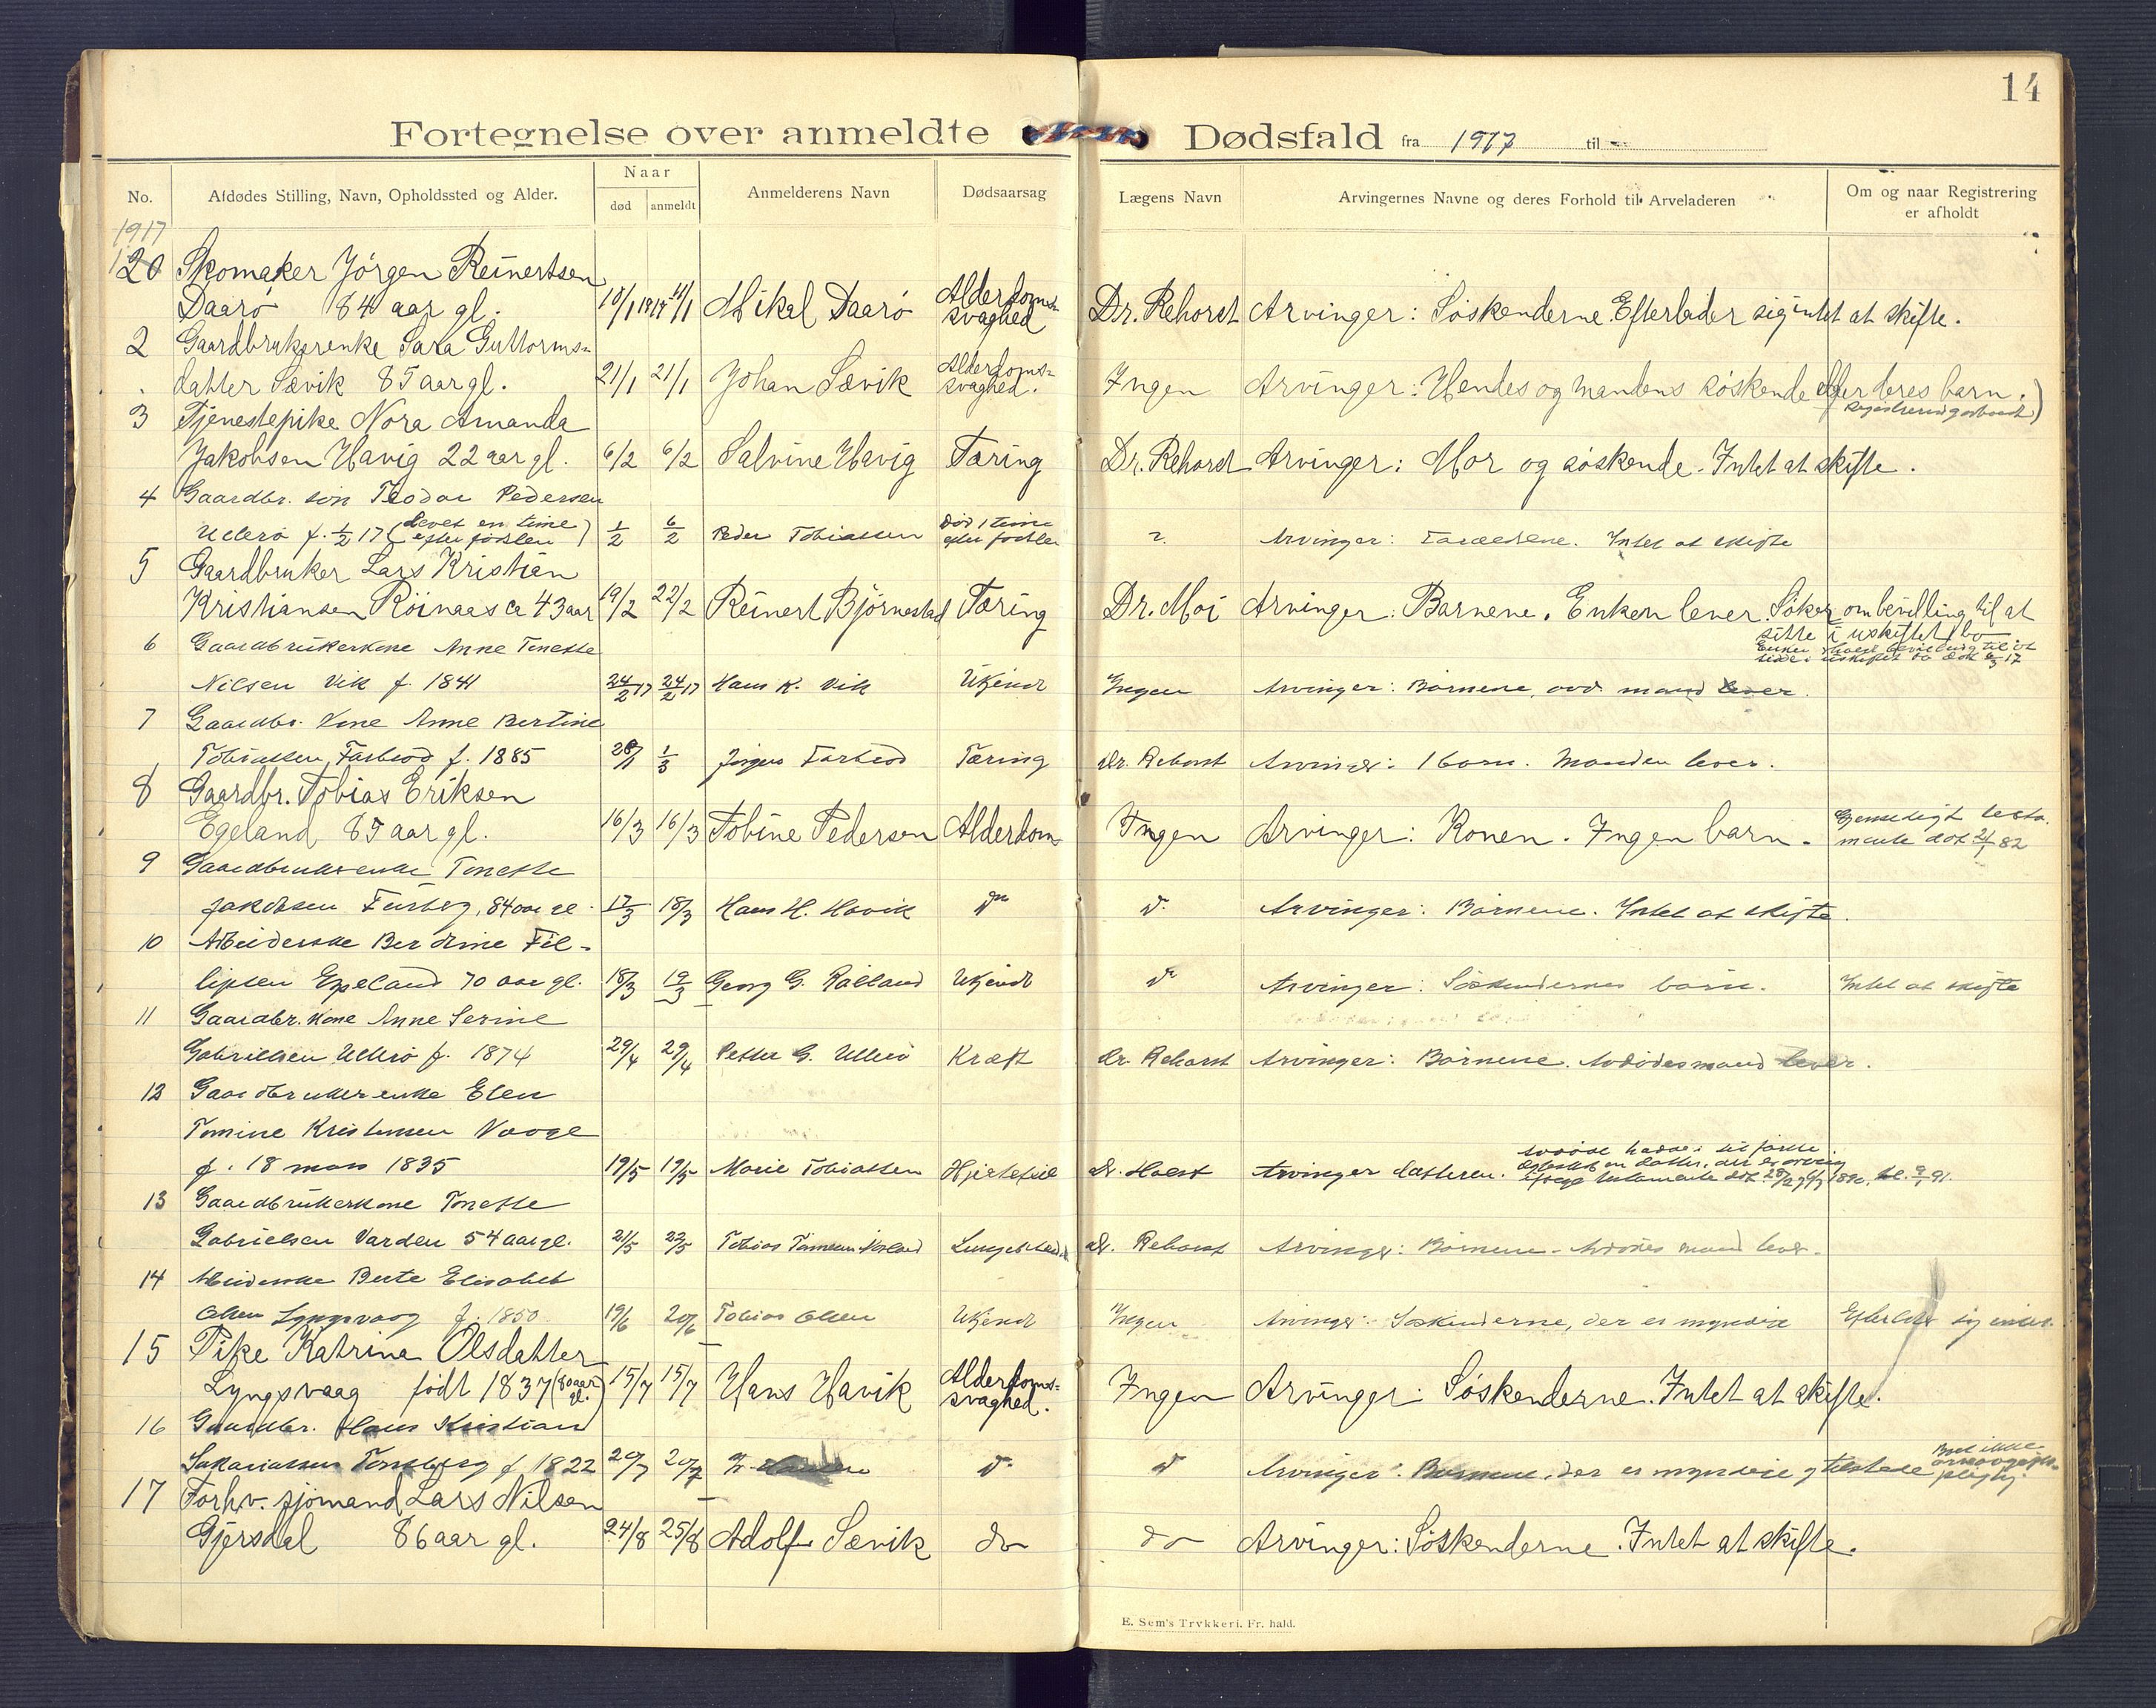 14
Fortegnelse over anmeldte Dødsfald fra 1917 til
No. Afdødes Stilling, Navn, Opholdssted og Alder. Naar død anmeldt Anmelderens Navn Dødsaarsag Lægens Navn Arvingernes Navne og deres Forhold til Arveladeren Om og naar Registrering er afholdt
1917
120 Skomaker Jörgen Reinertsen
Daarö 84 aar gl. 10/1 1917 11/1 Mikal Daarö Alderdoms- svaghed Dr. Rehorst Arvinger: Söskenderne. Efterlader sig intet at skifte.
2 Gaardbrukerenke Sara Guttorms-
datter Sævik 85 aar gl. 21/1 21/1 Johan Sævik Alderdoms- svaghed. Ingen Arvinger: Hendes og mandens söskende eller deres barn.
3 Tjenestepike Nora Amanda
Jakobsen Havig 22 aar gl. 6/2 6/2 Salvine Havig Tæring Dr. Rehorst Arvinger: Mor og söskende. Intet at skifte.
4 Gaardbr. sön Teodor Pedersen
Ullerö f. 1/2 17 (levet en time efter fødslen) 1/2 6/2 Peder Tobiassen Död 1 time efter fødslen Arvinger: Forældrene. Intet at skifte
5 Gaardbruker Lars Kristian
Kristiansen Röinaas ca 43 aar 19/2 22/2 Reinert Björnestad Tæring Dr. Moi Arvinger: Barnene. Enken lever. Söker om bevilling til at
sitte i uskiftet bo
6 Gaardbrukerkone Anne Tonette
Nilsen Vik f. 1841 24/2 17 24/2 17 Hans K. Vik Ukjendt Ingen Arvinger: Börnene, avd. mand lever.
7 Gaardbr. kone Anne Bertine
Tobiassen Farbrod f. 1885 28/1 1/3 Jörgen Farbrod Tæring Dr. Rehorst Arvinger: 1 barn. Manden lever.
8 Gaardbr. Tobias Eriksen
Egeland 85 aar gl. 16/3 16/3 Tobine Pedersen Alderdom Ingen Arvinger: Konen. Ingen barn. Gjensidigt testamente dat 21/1 82
9 Gaardbrukerenke Tonette
Jakobsen 84 aar gl. 17/3 18/3 Hans H. Havik do do Arvinger: Börnene. Intet at skifte.
10 Arbeiderske Berdine Fil-
lipsen Egeland 70 aar gl. 18/3 19/3 Georg G. Ukjendt do Arvinger: Söskendernes barn. Intet at skifte
11 Gaardbr. kone Anne Serine
Gabrielsen Ullerö f. 1874 29/4 29/4 Petter G. Ullerö Kræft Dr. Rehorst Arvinger: Börnene. Avdödes mand lever.
12 Gaardbrukerenke Elen
Tomine Kristensen Vaage
f. 18 mars 1835 19/5 19/5 Marie Tobiassen Hjertefeil Dr. Holst Arvinger datteren.
13 Gaardbrukerkone Tonette
Gabrielsen Varden 54 aar gl. 21/5 22/5 Tobias Dr. Rehorst Arvinger: Börnene. Avdödes mand lever.
14 Arbeiderske Berte Elisabet
Olsen Lyngsvaag f. 1850 19/6 20/6 Tobias Olsen Ukjendt Ingen Arvinger: Söskenderne, der er myndige Efterlater sig intet
15 Pike Katrine Olsdatter
Lyngsvaag födt 1837 (80 aar gl.) 15/7 15/7 Hans Havik Alderdoms- svaghed. Ingen Arvinger: Söskenderne. Intet at skifte.
16 Gaardbr. Hans Kristian
Sakariassen f 1822 20/7 20/7 do do Arvinger: Barnene, der er myndige
17 Forhv. sjömand Lars Nilsen
Gjersdal 86 aar gl. 24/8 25/8 Adolf Sævik do do Arvinger: Söskenderne. Intet at skifte.
E. Sem's Trykkeri. Fr. hald.